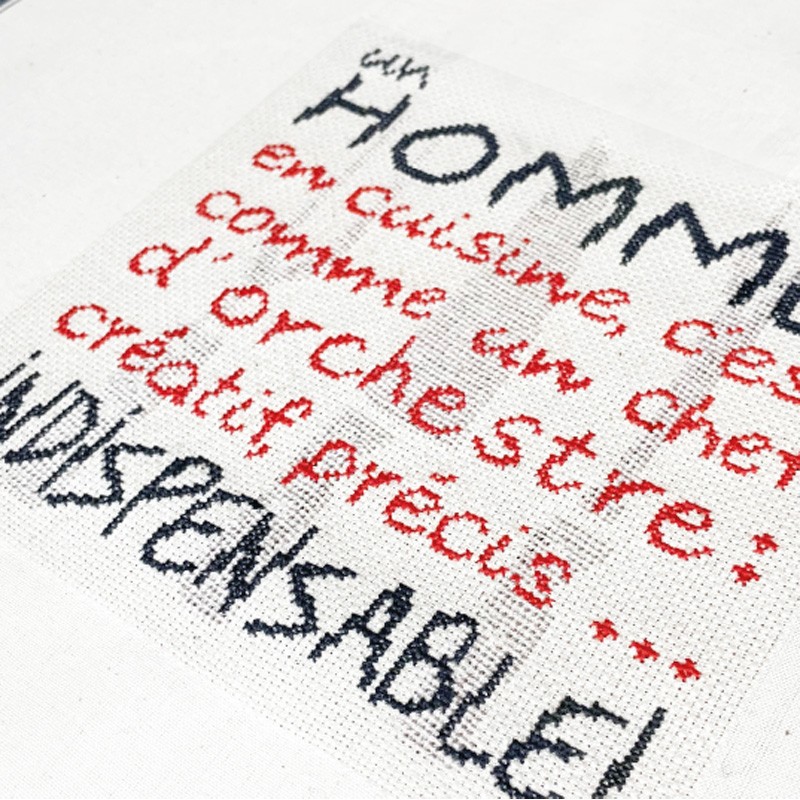 un
HOMME
en cuisine, c'es
comme un chef
d'orchestre:
créatif, précis ...
INDISPENSABLE!